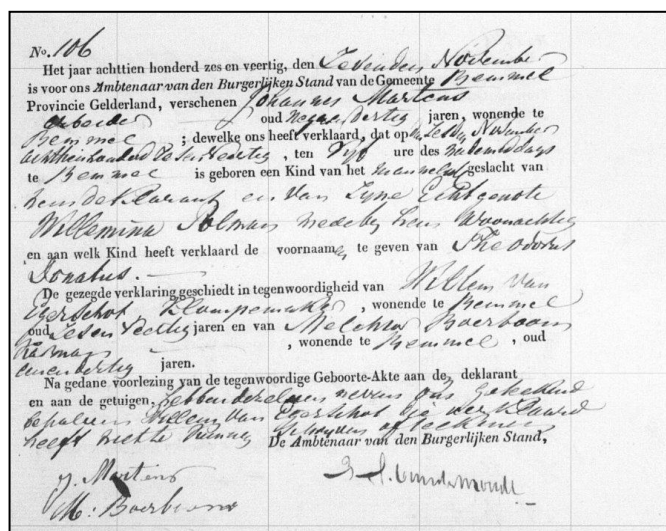 No. 106
Het jaar achttien honderd zes en veertig, den Zevenden November
is voor ons Ambtenaar van den Burgerlijken Stand van de Gemeente Bemmel
Provincie Gelderland, verschenen Johannes Martens
arbeider oud negenendertig jaren, wonende te
Bemmel ; dewelke ons heeft verklaard, dat op den zesden November
achttienhonderd zes en veertig, ten Vijf ure des namiddags
te Bemmel is geboren een Kind van het mannelijk geslacht van
hem deklarant en van zyne Echtgenote
Willemina Polman mede by hem woonachtig
en aan welk Kind heeft verklaard de voornamen te geven van Theodorus
Donatus.
De gezegde verklaring geschiedt in tegenwoordigheid van Willem van
Egerschot Klompemaker, wonende te Bemmel
oud Zes en Veertig jaren en van Melchior Boerboom
, wonende te Bemmel, oud
eenendertig jaren.
Na gedane voorlezing van de tegenwoordige Geboorte-Akte aan de deklarant
en aan de getuigen, hebben dezelven nevens ons getekend
behalven Willem van Egerschot die verklaard
heeft niet te kunnen schryven of teekenen
De Ambtenaar van den Burgerlijken Stand,
J. Martens
M: Boerboom